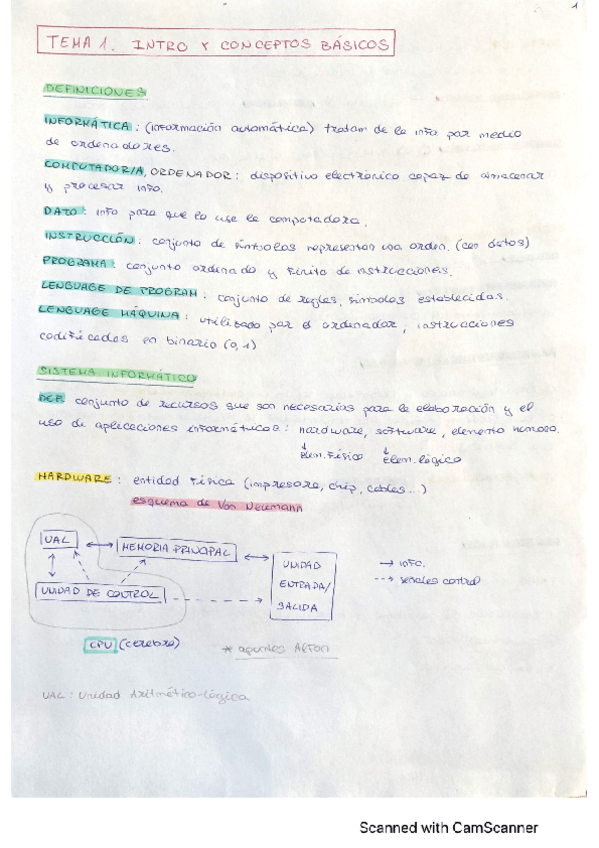 1
TEMA 1. INTRO Y CONCEPTOS BÁSICOS
DEFINICIONES
INFORMÁTICA: (información automática) tratam de la info por medio
de ordenadores.
COMPUTADOR/A, ORDENADOR: dispositivo electrónico capaz de almacenar
y procesar info.
DATO: info para que lo use la computadora.
INSTRUCCIÓN: conjunto de símbolos representan una orden. (con datos)
PROGRAMA: conjunto ordenado y finito de instrucciones.
LENGUAGE DE PROGRAM: conjunto de reglas, símbolos establecidas.
LENGUAGE MÁQUINA: utilizado por el ordenador, instrucciones
codificadas en binario (0,1)
SISTEMA INFORMÁTICO
DEF conjunto de recursos que son necesarios para la elaboración y el
uso de aplicaciones informáticas: hardware, software, elemento humano.
↓ elem. físico ↓ elem. lógico
HARDWARE: entidad física (impresora, chip, cables...)
esquema de Von Neumann
UAL ↔ MEMORIA PRINCIPAL ↔ UNIDAD
ENTRADA/
SALIDA
UNIDAD DE CONTROL
→ info.
--> señales control
CPU (cerebro)
* apuntes Afron
UAL: Unidad Aritmético-Lógica
Scanned with CamScanner